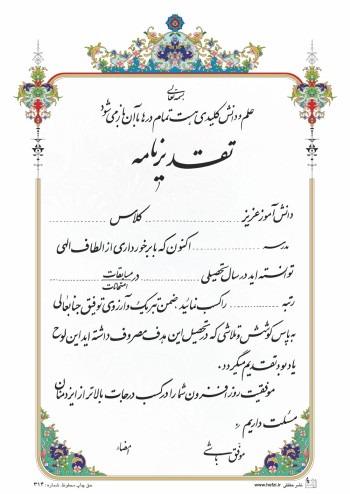 بسمه تعالی
علم و دانش کلیدی هست تمام درها با آن باز می شود
تقدیرنامه
دانش آموز عزیز ........ کلاس ........
مدرسه ........ اکنون که با برخورداری از الطاف الهی
توانسته اید در سال تحصیلی ........ در مسابقات
امتحانات
رتبه ........ را کسب نمائید. ضمن تبریک و آرزوی توفیق جنابعالی
به پاس کوشش و تلاشی که در تحصیل این هدف مصروف داشته اید این لوح
یادبود تقدیم میگردد.
موفقیت روز افزون شما را در کسب درجات بالاتر از ایزد منان
مسئلت داریم
موفق باشی
امضاء
حق چاپ محفوظ. شماره: ۳۱۴
www.hefzi.ir نشر حفظی